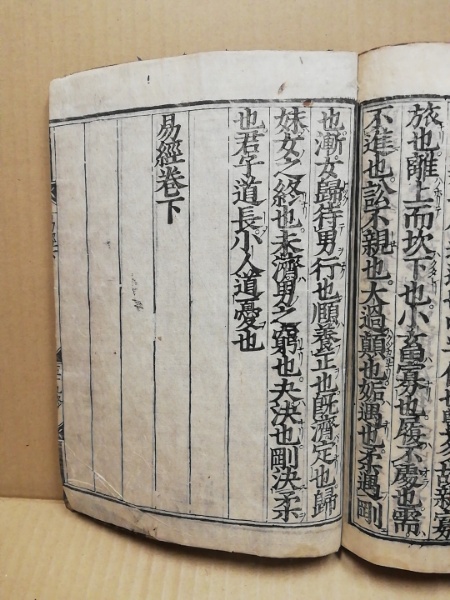 旅也離上而坎下也小畜寡也履不處也需
不進也訟不親也大過顛也姤遇也柔遇剛
也漸女歸待男行也頤養正也既濟定也歸
妹女之終也未濟男之窮也夬決也剛決柔
也君子道長小人道憂也
易經卷下